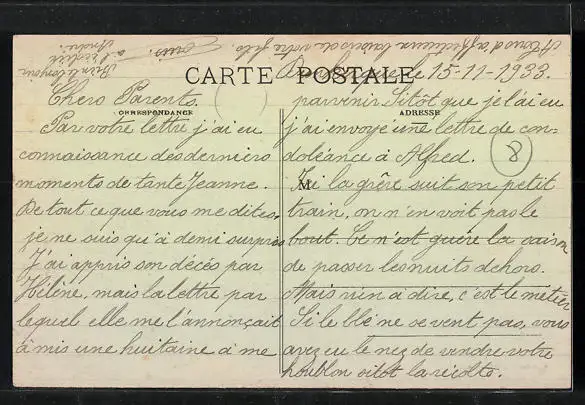 CARTE POSTALE
CORRESPONDANCE
ADRESSE
M
8
le 15-11-1933.
Chers Parents.
Par votre lettre j'ai eu
connaissance des derniers
moments de tante Jeanne.
De tout ce que vous me dites,
je ne suis qu'à demi surpris
J'ai appris son décès par
Hélène, mais la lettre par
lequel elle me l'annonçait
à mis une huitaine à me
parvenir. Sitôt que je l'ai eu
j'ai envoyé une lettre de con-
doléance à Alfred.
Ici la grêve suit son petit
train, on n'en voit pas le
bout. Ce n'est guère la saison
de passer les nuits dehors.
Mais rien à dire, c'est le métier
Si le blé ne se vent pas, vous
avez eu le nez de vendre votre
houblon sitôt la récolte.
baisers de votre fils.